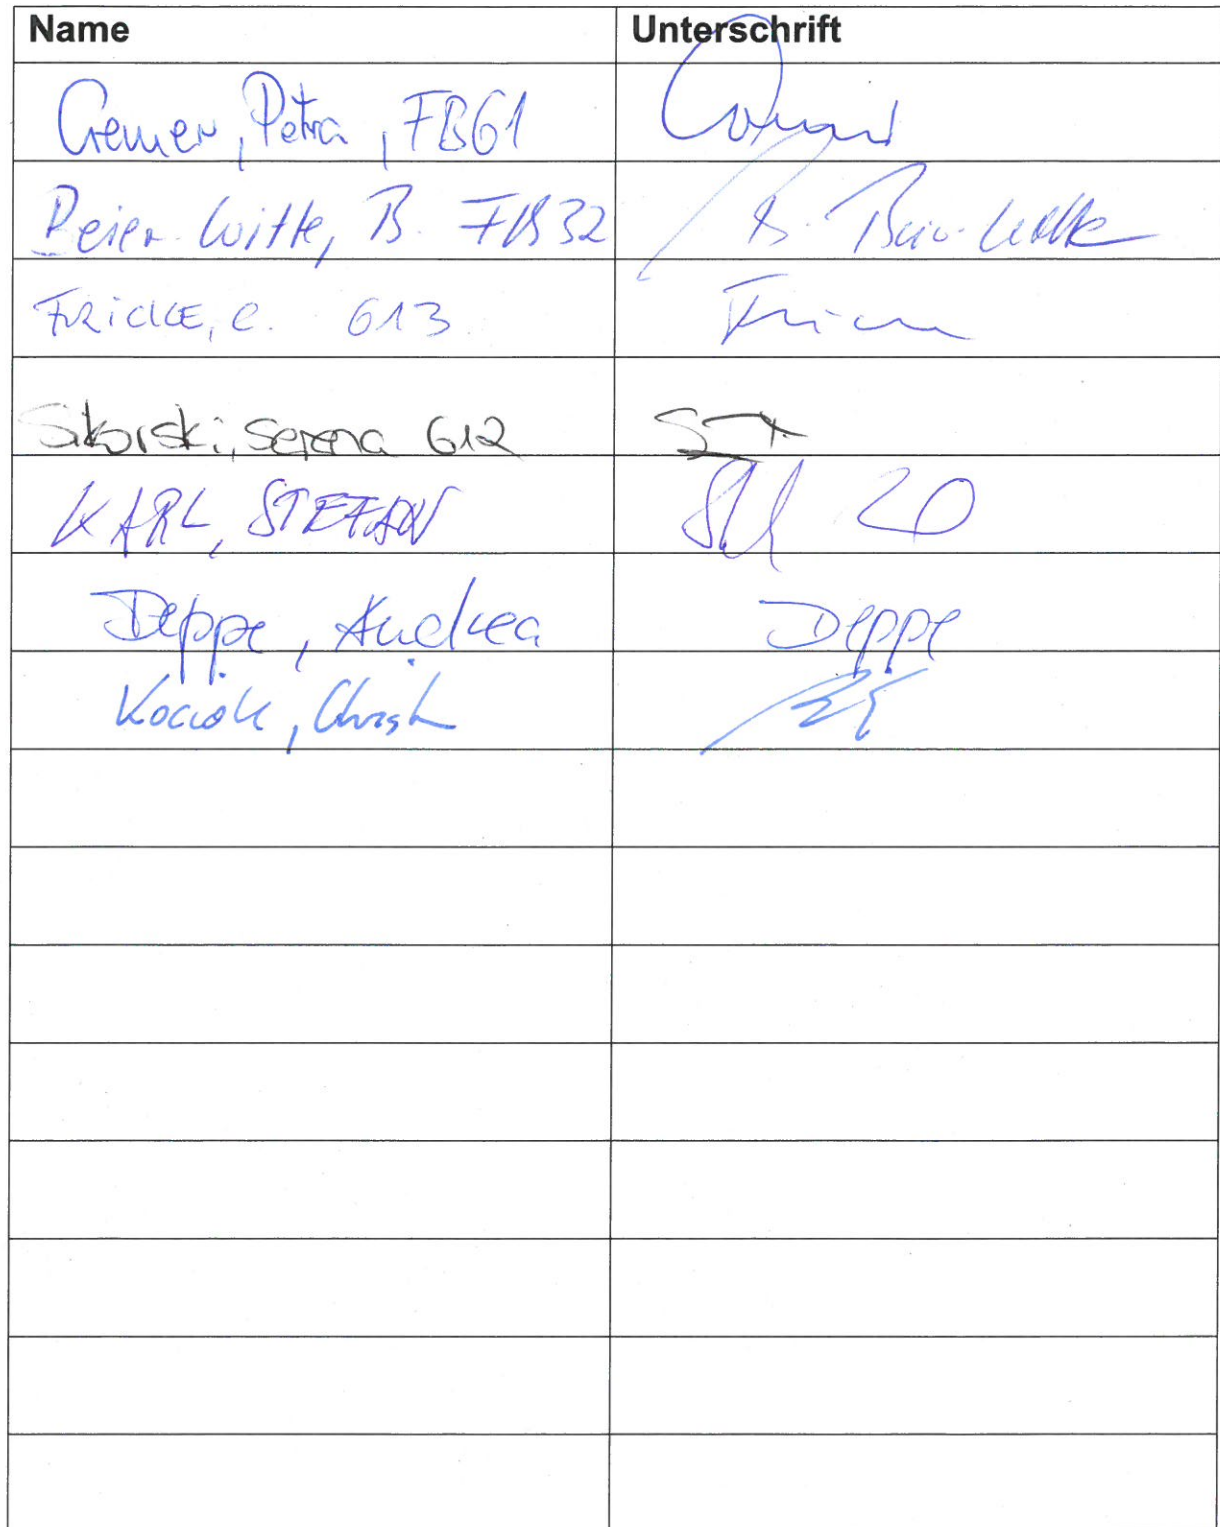 Name Unterschrift
Cremer, Petra, FB61
Beier-Witte, B. FB32 B. Beier-Witte
FRICKE, C. 613
Sikorski, Serena 612
KARL, STEFAN
Deppe, Andrea Deppe